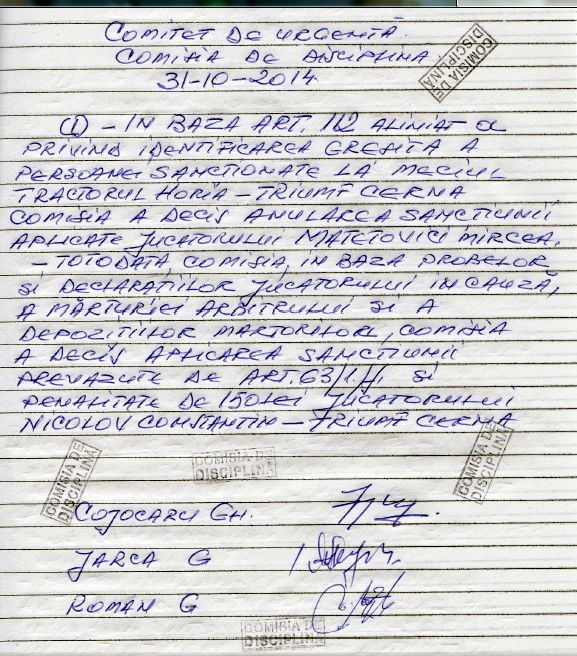 COMITET DE URGENTĂ
COMISIA DE DISCIPLINA
31-10-2014
COMISIA DE
DISCIPLINA
(1) - IN BAZA ART. 112 ALINIAT a
PRIVIND IDENTIFICAREA GRESITA A
PERSOANEI SANCTIONATE LA MECIUL
TRACTORUL HORIA - TRIUMF CERNA
COMISIA A DECIS ANULAREA SANCTIUNII
APLICATE JUCATORULUI MATETOVICI MIRCEA.
- TOTODATA COMISIA IN BAZA PROBELOR
SI DECLARATIILOR JUCATORULUI IN CAUZĂ,
A MĂRTURIEI ARBITRULUI SI A
DEPOZITIILOR MARTORILOR, COMISIA
A DECIS APLICAREA SANCTIUNII
PREVAZUTE DE ART. 63/1. SI
PENALITATE DE 150 LEI JUCATORULUI
NICOLOV CONSTANTIN - TRIUMF CERNA
COMISIA DE
DISCIPLINA
COMISIA DE
DISCIPLINA
COMISIA DE
DISCIPLINA
COJOCARU GH.
JARCA G
ROMAN G
COMISIA DE
DISCIPLINA